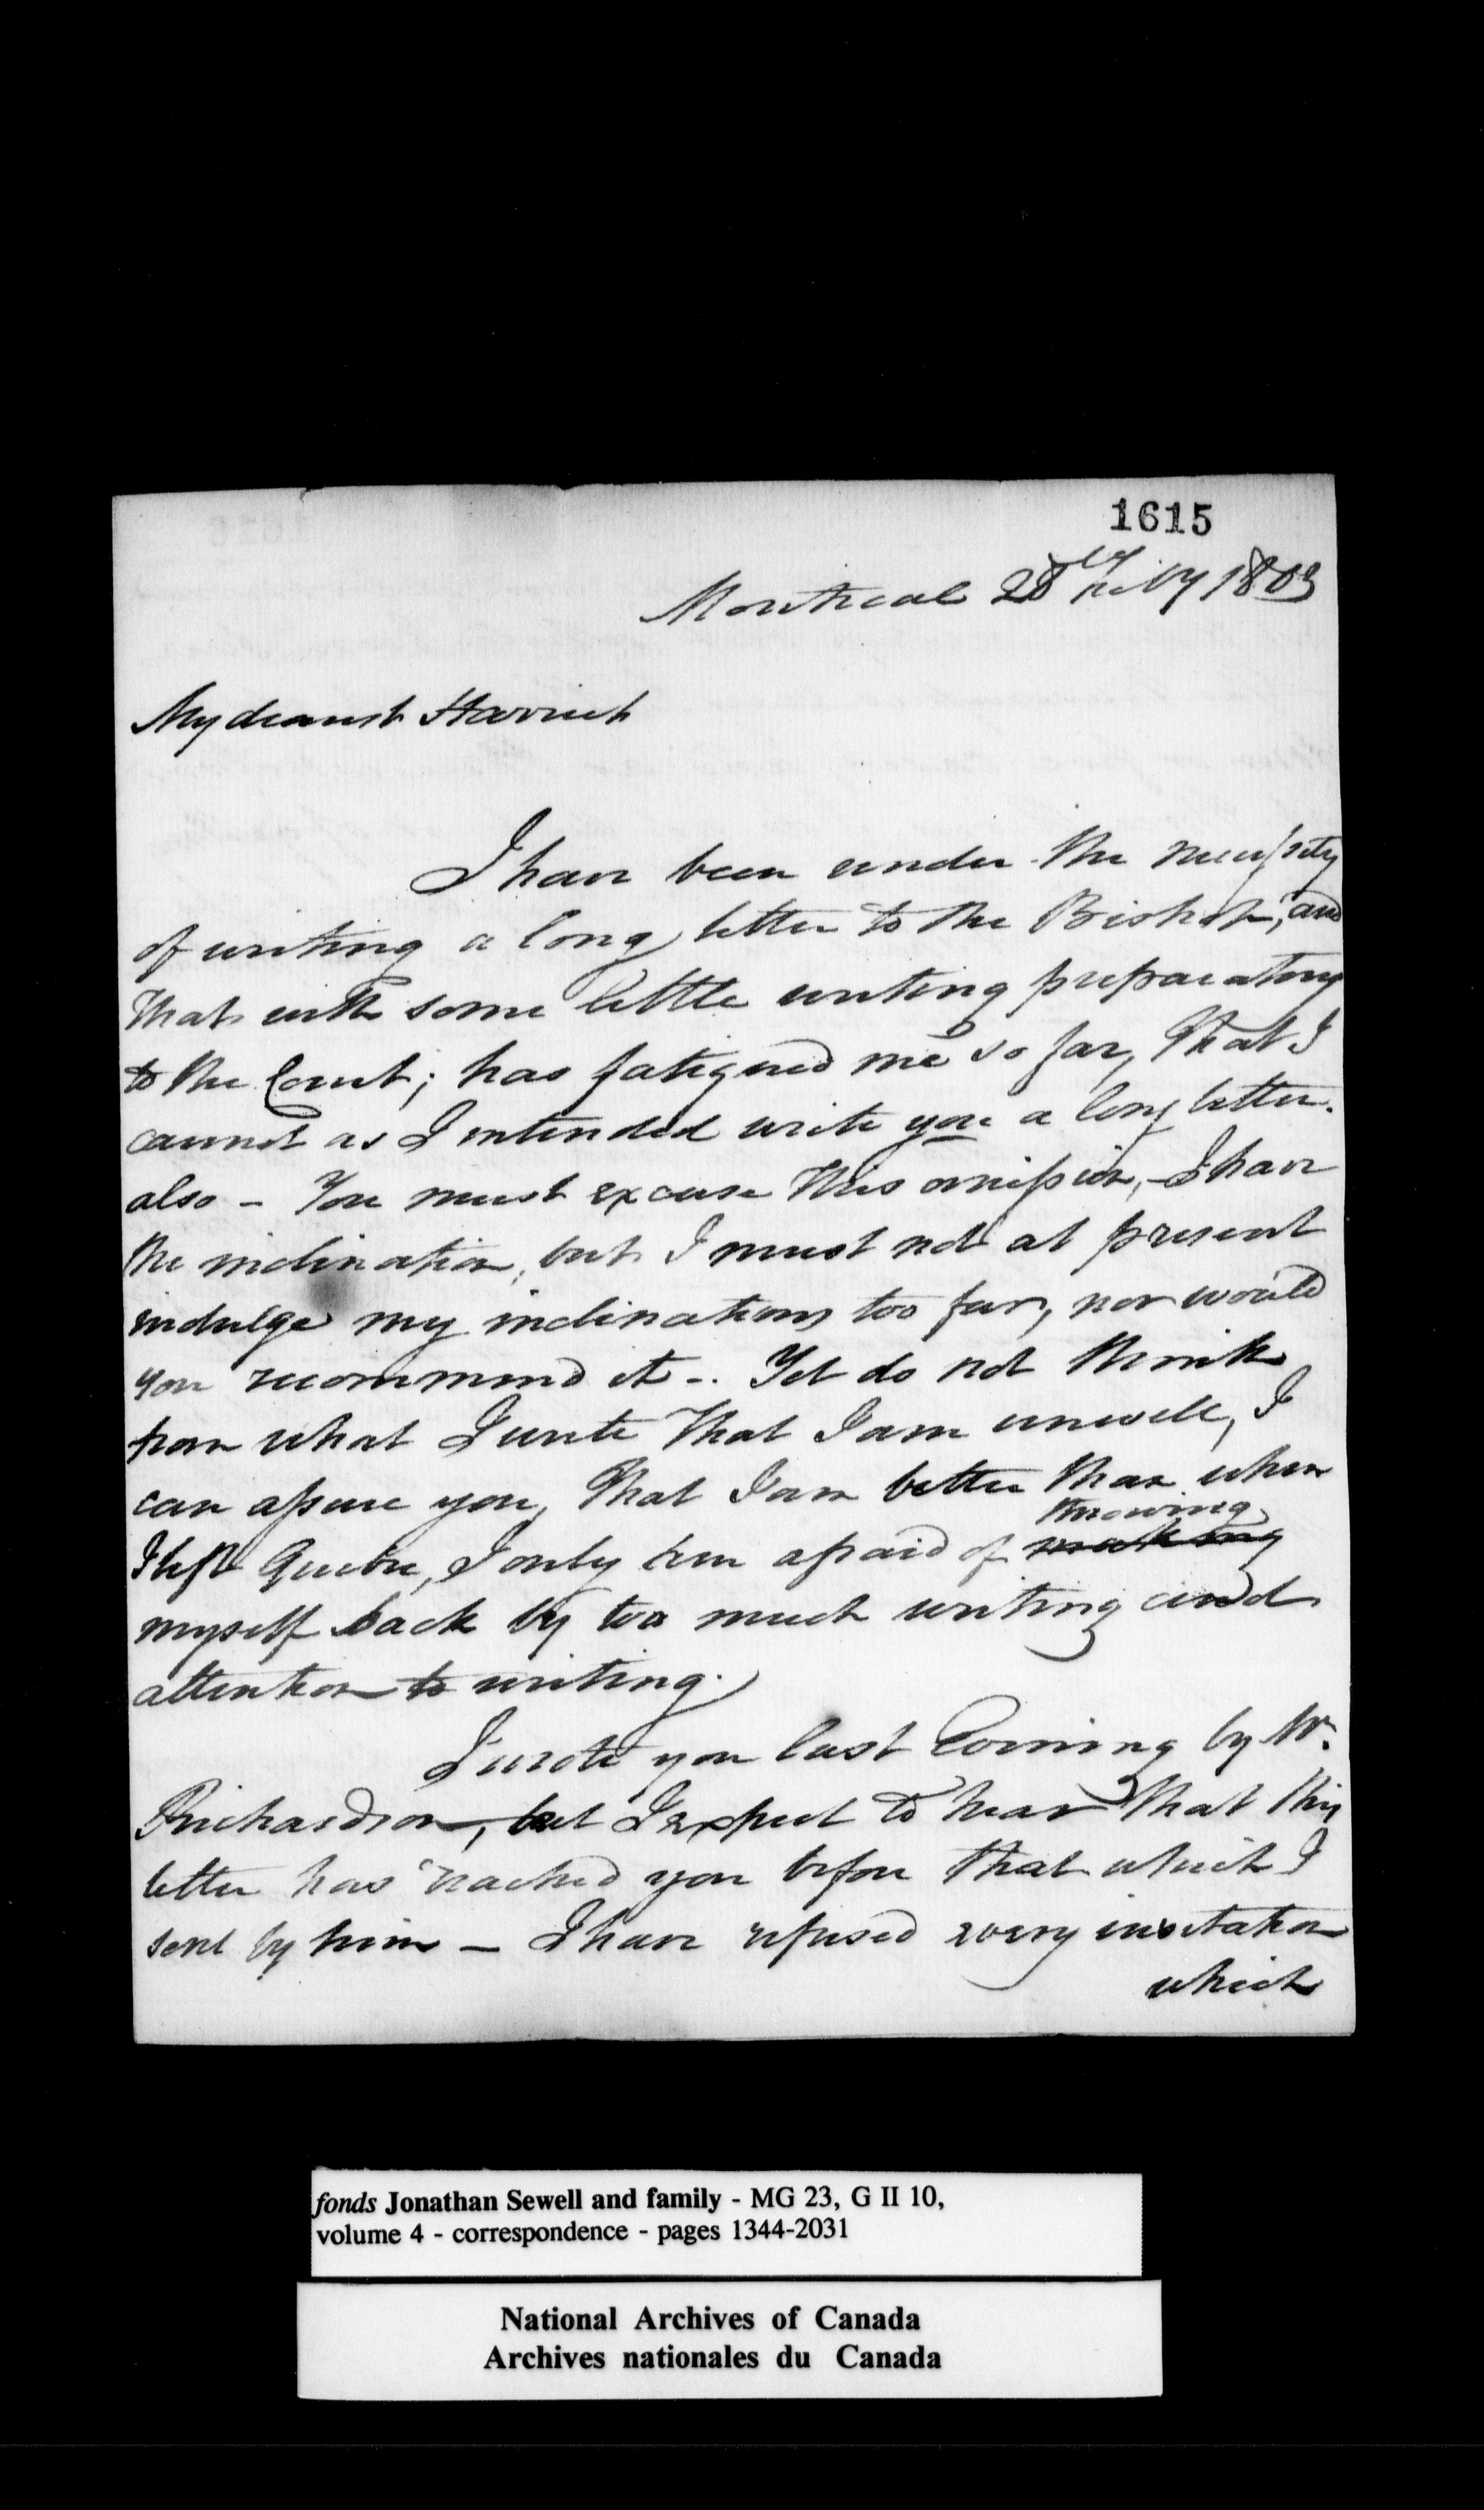 1615
Montreal 28th Feby 1803
My dearest Harriet
I have been under the necessity
of writing a long letter to the Bishop, and
that with some little writing preparatory
to the Court; has fatigued me so far, that I
cannot as I intended write you a long letter
also - You must excuse this omission, - I have
the inclination, but I must not at present
indulge my inclinations too far, nor would
you recommend it -. Yet do not think
from what I write that I am unwell, I
can assure you, that I am better than when
throwing
I left Quebec, I only am afraid of making
myself back by too much writing and
attention to writing.
I wrote you last Evening by Mr.
Richardson, but I expect to hear that this
letter has reached you before that which I
sent by him - I have refused every invitation
which
fonds Jonathan Sewell and family - MG 23, G II 10,
volume 4 - correspondence - pages 1344-2031
National Archives of Canada
Archives nationales du Canada